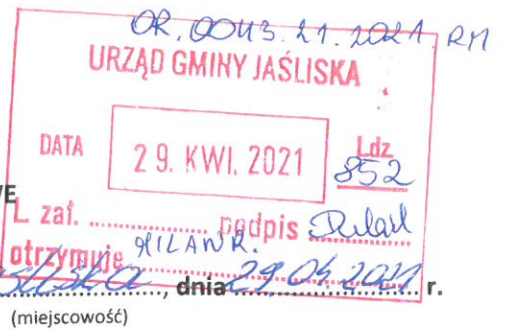 OR.0043.21.2021.RM
URZĄD GMINY JAŚLISKA
DATA 29. KWI. 2021 Ldz. 852
WE
L. zał. .................... podpis
otrzymuje MILAN R.
Jaśliska, dnia 29.04.2021 r.
(miejscowość)